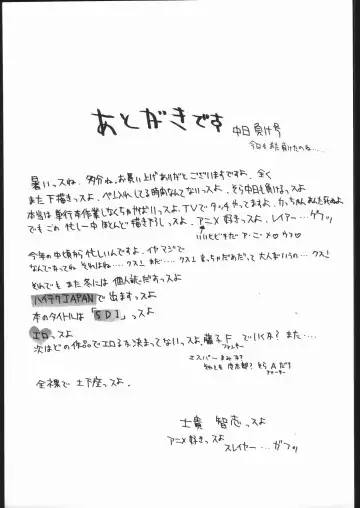 あとがきです
中日負け号
今日も又負けたのね……
暑いっスね、多分ね。お買い上げありがとうございますですよ。全く
また下描きっスよ。ペン入れしてる時間なんてないっスよ。そら中日も負けるっスよ
本当は単行本作業しなくちゃヤバいっスよ。TVでタッチやってますよ。かっちゃん
でもこの忙しー中ほとんど描き下ろしっスよ。アニメ好きっスよ。レイアー…ゲフッ
今年の中頃から忙しいんですよ。イヤマジで
なんでかってね それはね……クス! まだ……クス!
それでもまた冬には個人誌だすっスよ
ハイテクJAPANで出ますっスよ
本のタイトルは「SDI」っスよ
エロっスよ
次はどの作品でエロるか決まってないっスよ 藤子Fでいくか?また…
エスパーまみか?
それとも
全裸で土下座っスよ。
士貴智志っスよ
アニメ好きっスよ
スレイヤー…ガフッ